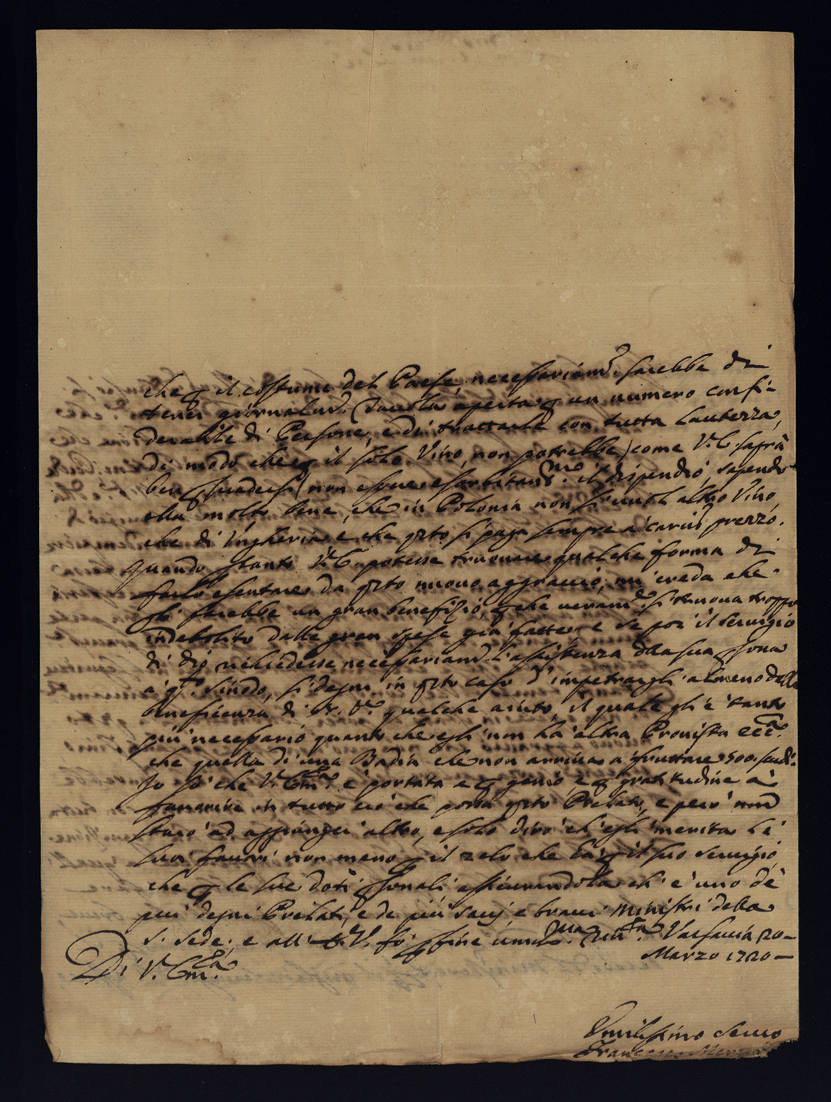 che p il costume del Paese, necessariam.e sarebbe di
tener giornalm.e Tavola aperta p un numero consi-
derabile di Persone, e di trattarle con tutta lautezza,
di modo che p il solo Vino, non potrebbe (come V.E. saprà
ben non essere esorbitantis.mo il dispendio, sapendo
ella molto bene, che in Polonia non si altro Vino,
che di Ungheria e che qsto si paga sempre a cariss.o prezzo.
quando ptanto V.E. potesse truovare qualche forma di
farlo esentare da qsto nuovo aggravio, mi creda che
gli sarebbe un gran benefizio, che veram.e si truova troppo
indebolito dalle gran spese già fatte, e se poi il servigio
di dio richiedesse necessariam.e l'assistenza della sua psona
a q.to Sinodo, si degni in qsto caso d'impetrargli almeno dalla
beneficenza di qualche aiuto, il quale gli è tanto
più necessario quanto che egli non ha altra Provista ecc.ca
che quella di una Badia che non arriva a fruttare 500 scudi.
Io sò che V. Em.za è portata e p genio e p gratitudine à
favorire in tutto ciò che porta qsto Prelato, e però non
starò ad aggiunger altro, e solo dirò ch'egli merita le
sue favori non meno p il zelo che hà p il suo servigio,
che p le sue doti psonali assicurandola ch'è uno de
più degni Prelati, e de più savj e bravi Ministri della
S. Sede. e all' fò p fine umilis.ma Varsavia 20-
Di V. Em.za Marzo 1720-
Umilissimo Servo
Francesco